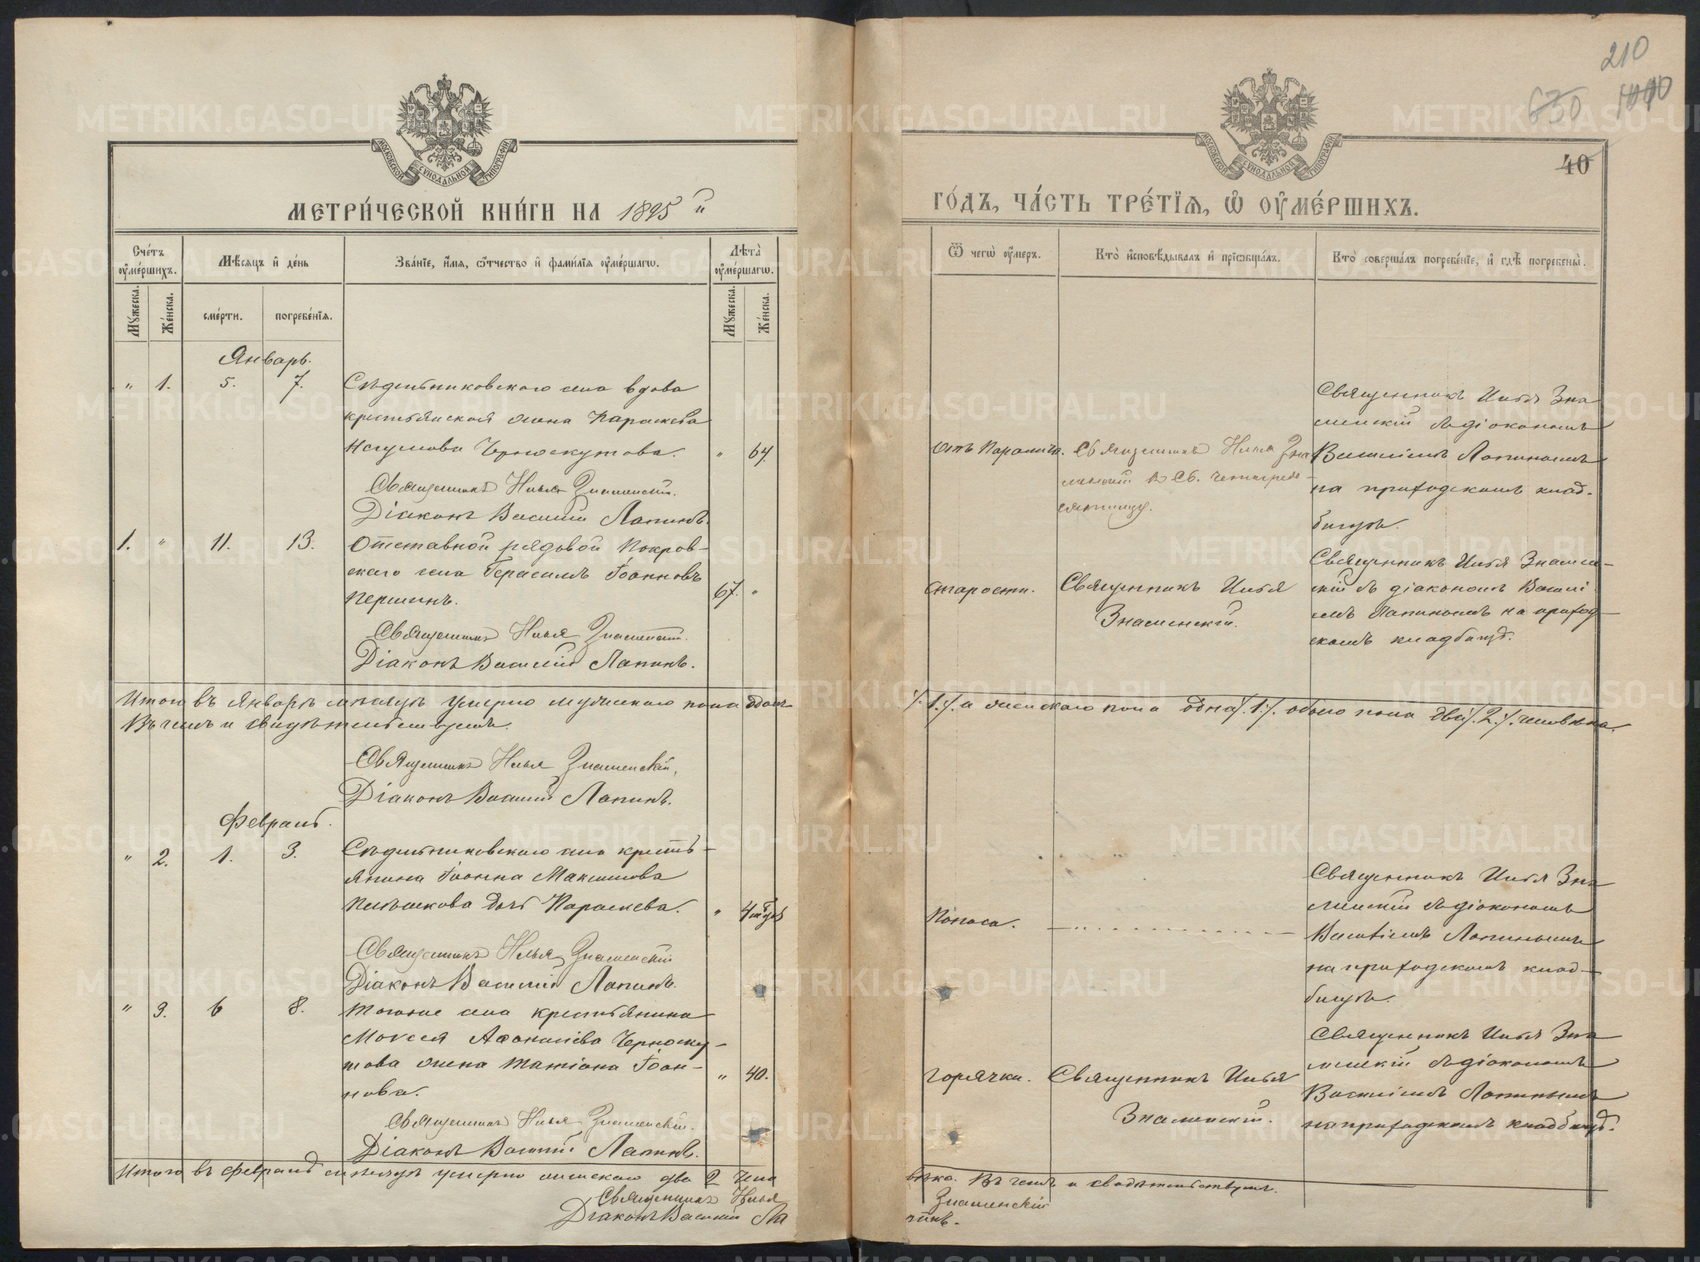 210
630 1040
40
МОСКОВСКОЙ СѴНОДАЛЬНОЙ ТИПОГРАФІИ
МОСКОВСКОЙ СѴНОДАЛЬНОЙ ТИПОГРАФІИ
МЕТРИ́ЧЕСКОЙ КНИ́ГИ НА 1895 й
ГО́ДЪ, ЧА́СТЬ ТРЕ́ТІѦ, Ѡ ОУ҆МЕ́РШИХЪ.
Сче́тъ оу҆ме́ршихъ.
Мѣ́сяцъ и҆ де́нь
Зва́нїе, и҆́мя, ѻ҆́тчество и҆ фами́лїя оу҆ме́ршагѡ.
Лѣта̀ оу҆ме́ршагѡ.
Ѿ чегѡ̀ оу҆́меръ.
Кто̀ и҆сповѣ́дывалъ и҆ прїѡбща́лъ.
Кто̀ соверша́лъ погребе́нїе, и҆ гдѣ̀ погребены̀.
Мꙋ́жеска.
Же́нска.
сме́рти.
погребе́нїя.
Мꙋ́жеска.
Же́нска.
Январь.
" 1. 5. 7. Сѣдельниковскаго села вдова
крестьянская жена Параскева
Наумова Черноскутова. " 64.
Священникъ Илья Знаменскій.
Діаконъ Василій Лапинъ.
отъ Паралича. Священникъ Илья Зна
менскій въ св. четыредесятницу.
Священникъ Илья Зна
менскій съ діакономъ
Василіемъ Лапинымъ
на приходскомъ клад-
бищѣ.
1. " 11. 13. Отставной рядовой Покров-
скаго села Герасимъ Іоанновъ
Першинъ. 67. "
Священникъ Илья Знаменскій.
Діаконъ Василій Лапинъ.
старости. Священникъ Илья
Знаменскій.
Священникъ Илья Знамен-
скій съ діакономъ Василі
емъ Лапинымъ на приход-
скомъ кладбищѣ.
Итого въ Январѣ мѣсяцѣ умерло мужескаго пола одинъ /.1./. а женскаго пола одна /.1./. обоего пола два /.2./. человѣка.
Въ чемъ и свидѣтельствуемъ.
Священникъ Илья Знаменскій,
Діаконъ Василій Лапинъ.
Февраль.
" 2. 1. 3. Сѣдельниковскаго села кресть-
янина Іоанна Максимова
дочь Параскева. "
Священникъ Илья Знаменскій
Діаконъ Василій Лапинъ.
Поноса.
Священникъ Илья Зна
менскій съ діакономъ
Василіемъ Лапинымъ
на приходскомъ клад-
бищѣ.
" 3. 6 8. Тогоже села крестьянина
Моисея Аѳанасіева Черноску-
това жена Татіана Іоан-
нова. " 40.
Священникъ Илья Знаменскій.
Діаконъ Василій Лапинъ.
горячки. Священникъ Илья
Знаменскій.
Священникъ Илья Зна
менскій съ діакономъ
Василіемъ Лапинымъ
на приходскомъ кладбищѣ.
Итого въ Февралѣ мѣсяцѣ умерло женскаго два 2 чело
вѣка. Въ чемъ и свидѣтельствуемъ.
Священникъ Илья Знаменскій
Діаконъ Василій Лапинъ.
METRIKI.GASO-URAL.RU